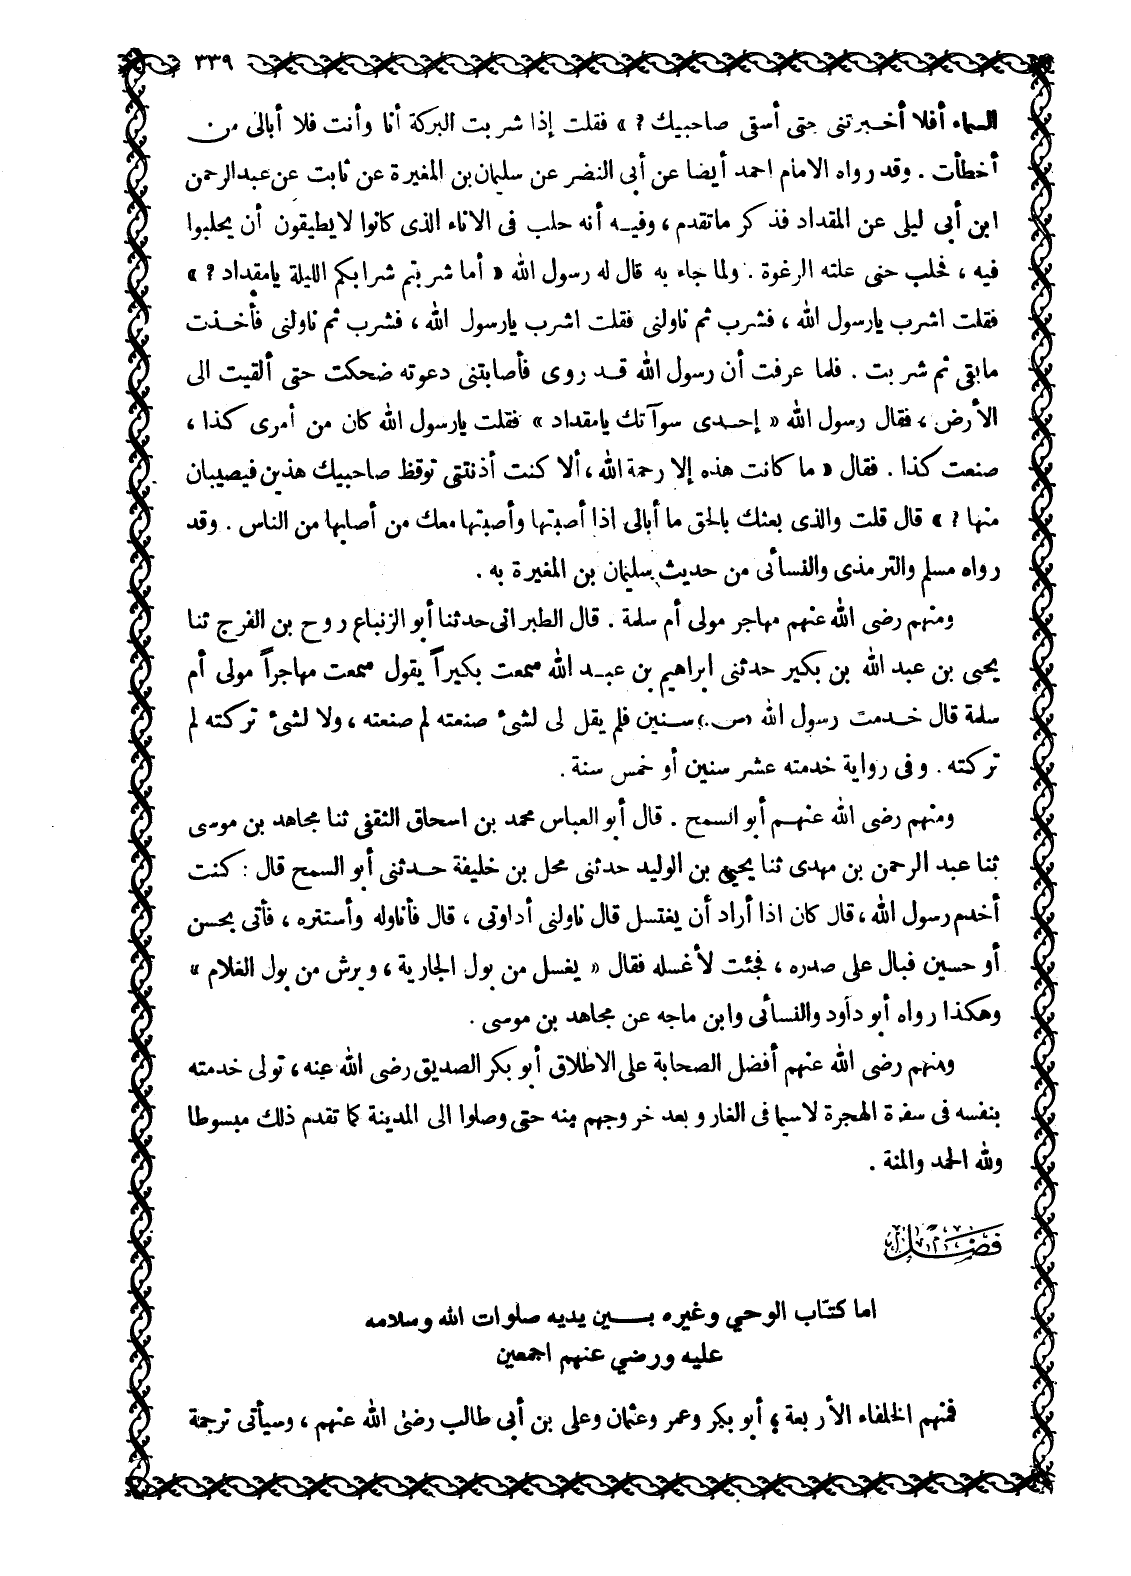 ٣٣٩
السماء أفلا أخبرتنى حتى أسقى صاحبيك ? » فقلت إذا شربت البركة أنا وأنت فلا أبالى من
أخطأت . وقد رواه الامام احمد أيضا عن أبى النضر عن سليمان بن المغيرة عن ثابت عن عبد الرحمن
ابن أبى ليلى عن المقداد فذكر ماتقدم ، وفيه أنه حلب فى الاناء الذى كانوا لا يطيقون أن يحلبوا
فيه ، فحلب حتى علته الرغوة . ولما جاء به قال له رسول الله « أما شربتم شرابكم الليلة يامقداد ? »
فقلت اشرب يارسول الله ، فشرب ثم ناولنى فقلت اشرب يارسول الله ، فشرب ثم ناولنى فأخذت
مابقى ثم شربت . فلما عرفت أن رسول الله قد روى فأصابتنى دعوته ضحكت حتى ألقيت الى
الأرض ، فقال رسول الله « إحدى سوآتك يامقداد » فقلت يارسول الله كان من أمرى كذا ،
صنعت كذا . فقال « ما كانت هذه إلا رحمة الله ، ألا كنت أذنتنى توقظ صاحبيك هذين فيصيبان
منها ? » قال قلت والذى بعثك بالحق ما أبالى اذا أصبتها وأصبتها معك من أصابها من الناس . وقد
رواه مسلم والترمذى والنسائى من حديث سليمان بن المغيرة به .
ومنهم رضى الله عنهم مهاجر مولى أم سلمة . قال الطبرانى حدثنا أبو الزنباع روح بن الفرج ثنا
يحيى بن عبد الله بن بكير حدثنى ابراهيم بن عبد الله سمعت بكيراً يقول سمعت مهاجراً مولى أم
سلمة قال خدمت رسول الله (س.) سنين فلم يقل لى لشىء صنعته لم صنعته ، ولا لشىء تركته لم
تركته . وفى رواية خدمته عشر سنين أو خمس سنة .
ومنهم رضى الله عنهم أبو السمح . قال أبو العباس محمد بن اسحاق الثقفى ثنا مجاهد بن موسى
ثنا عبد الرحمن بن مهدى ثنا يحيى بن الوليد حدثنى محل بن خليفة حدثنى أبو السمح قال : كنت
أخدم رسول الله ، قال كان اذا أراد أن يغتسل قال ناولنى أداوتى ، قال فأناوله وأستتره ، فأتى بحسن
أو حسين فبال على صدره ، فجئت لأغسله فقال « يغسل من بول الجارية ، ويرش من بول الغلام »
وهكذا رواه أبو داود والنسائى وابن ماجه عن مجاهد بن موسى .
ومنهم رضى الله عنهم أفضل الصحابة على الاطلاق أبو بكر الصديق رضى الله عنه ، تولى خدمته
بنفسه فى سفرة الهجرة لاسيما فى الغار وبعد خروجهم منه حتى وصلوا الى المدينة كما تقدم ذلك مبسوطا
ولله الحمد والمنة .
فصل
اما كتّاب الوحي وغيره بين يديه صلوات الله وسلامه
عليه ورضي عنهم اجمعين
فمنهم الخلفاء الأربعة ؛ أبو بكر وعمر وعثمان وعلى بن أبى طالب رضى الله عنهم ، وسيأتى ترجمة